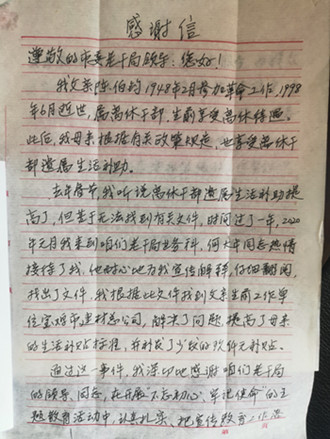 感谢信
尊敬的市委老干局领导：您好！
我父亲陈伯均1948年2月参加革命工作，1998
年6月逝世，属离休干部，生前享受离休待遇。
此后，我母亲根据有关政策规定，也享受离休干
部遗属生活补助。
去年春节，我听说离休干部遗属生活补助提
高了，但苦于无法找到有关文件，时间过了一年，2020
年2月我来到咱们老干局业务科，何大年同志热情
接待了我，他耐心地为我宣传解释，仔细翻阅，
找出了文件。我根据此文件找到父亲生前工作单
位宝鸡市建材总公司，解决了问题，提高了母亲
的生活补贴标准，并补发了少发的
通过这一事件，我深切地感谢咱们老干局
的领导、同志，在开展"不忘初心、牢记使命"的主
题教育活动中，认真扎实，把宣传政